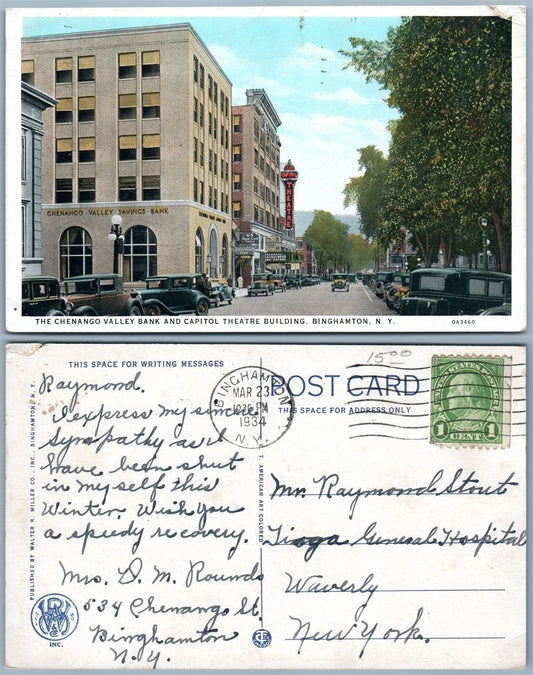 CHENANGO VALLEY SAVINGS BANK
THEATRE
THE CHENANGO VALLEY BANK AND CAPITOL THEATRE BUILDING, BINGHAMTON, N. Y.
0A3460
THIS SPACE FOR WRITING MESSAGES
Raymond.
I express my sincere
sympathy as I
have been shut
in myself this
Winter. Wish you
a speedy recovery.
Mrs. D. M. Rounds
534 Chenango St.
Binghamton
N.Y.
PUBLISHED BY WALTER R. MILLER CO., INC., BINGHAMTON, N. Y.
INC.
BINGHAMTON
MAR 23
1934
N.Y.
T. AMERICAN ART COLORED
15⁰⁰
POST CARD
THIS SPACE FOR ADDRESS ONLY
UNITED STATES POSTAGE
1 CENT 1
Mr. Raymond Stout
Tioga General Hospital
Waverly
New York.